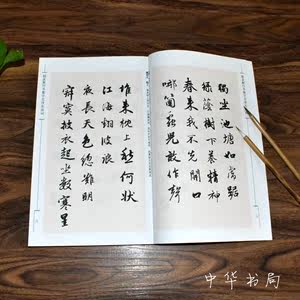 獨坐池塘如虎踞
綠蔭樹下養精神
春來我不先開口
哪箇蟲兒敢作聲
堆來枕上愁何狀
江海翻波浪
夜長天色總難明
寂寞披衣起坐數寒星
中华书局